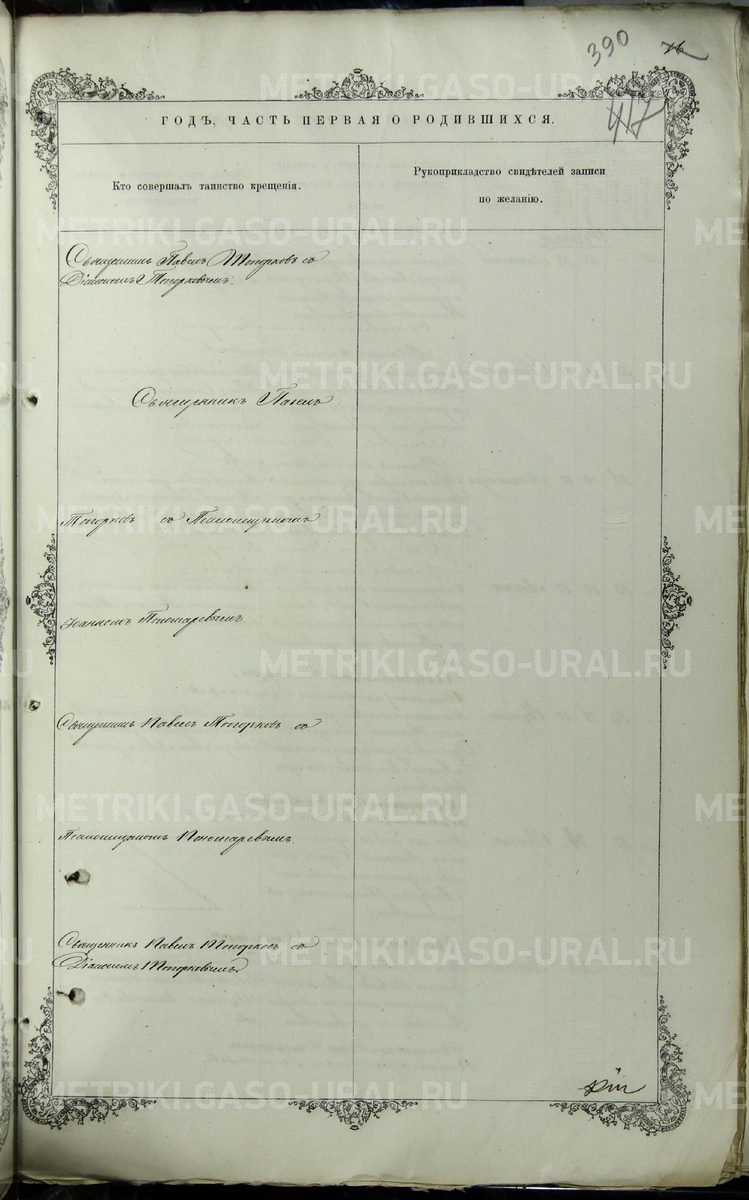 390
76
417
ГОДЪ, ЧАСТЬ ПЕРВАЯ О РОДИВШИХСЯ.
Кто совершалъ таинство крещенія.
Рукоприкладство свидѣтелей записи
по желанію.
Священникъ Павелъ Топорковъ съ
Діакономъ Топорковымъ.
Священникъ Павелъ
Топорковъ съ Псаломщикомъ
Іоанномъ Пономаревымъ.
Священникъ Павелъ Топорковъ съ
Псаломщикомъ Пономаревымъ
Священникъ Павелъ Топорковъ съ
Діакономъ Топорковымъ.
METRIKI.GASO-URAL.RU